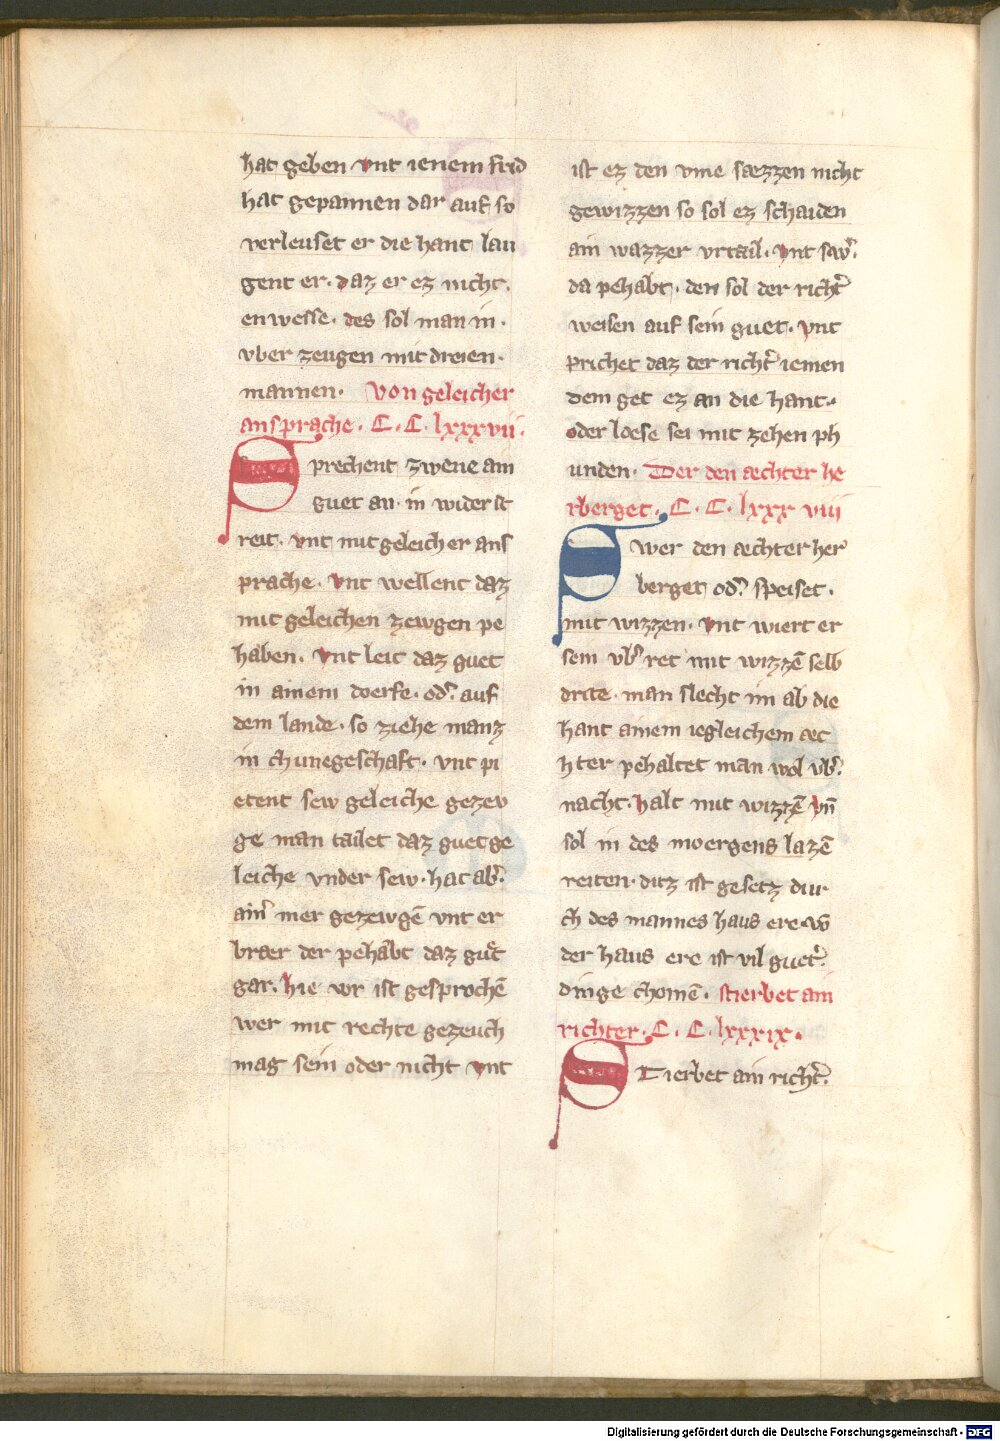 hat geben vnt ienem frid
hat gepannen dar auf so
verleuset er die hant lau
gent er · daz er ez nicht ·
enwesse · des sol man in ·
vber zeugen mit dreien ·
mannen · Von geleicher
ansprache · C · C · lxxxvii ·
Sprechent zwene ain
guet an · in wider st
reit · vnt mit geleicher ans
prache · vnt wellent daz
mit geleichen zewgen pe
haben · vnt leit daz guet
in ainem doerfe · od᷑ auf
dem lande · so ziehe manz
in chunegeschaft · vnt pi
etent sew geleiche gezev
ge man tailet daz guet ge
leiche vnder sew · hat ab᷑
ain᷑ mer gezewgē vnt er
braer der pehabt daz guͤt
gar · hie vor ist gesprochē
wer mit rechte gezeuch
mag sein oder nicht vnt
ist ez den vme saezzen nicht
gewizzen so sol ez schaiden
ain wazzer vrtail · vnt sw᷑
da pehabt · den sol der richt᷑
weisen auf sein guet · vnt
prichet daz der richt᷑ iemen
dem get ez an die hant ·
oder loese sei mit zehen ph
unden · Der den aechter he
rberget · C · C · lxxx viii
Swer den aechter her
berget od᷑ speiset ·
mit wizzen · vnt wiert er
sein vb᷑ ret mit wizzē selb
drite · man slecht im ab die
hant ainem iegleichem aec
hter pehaltet man wol vb᷑
nacht · halt mit wizzē vn̄
sol in des moergens lazē
reiten · ditz ist gesetz dur
ch des mannes haus ere · vō
der haus ere ist vil guet᷑
dinge chomē · stierbet ain
richter · C · C · lxxxix ·
STierbet ain richt᷑
Digitalisierung gefördert durch die Deutsche Forschungsgemeinschaft - DFG